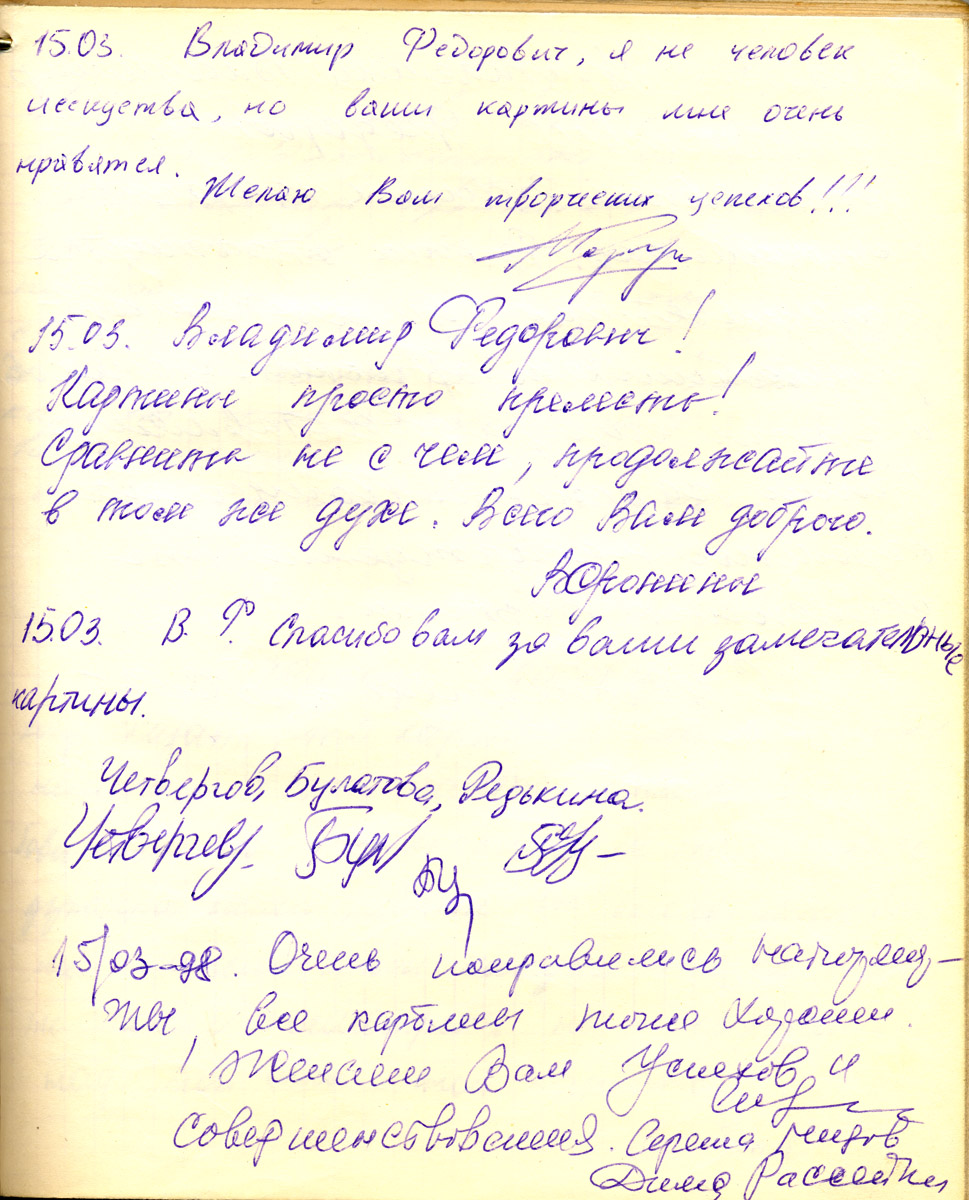 15.03. Владимир Федорович, я не человек
исскуства, но ваши картины мне очень
нравятся.
Желаю Вам творческих успехов!!!
15.03. Владимир Федорович!
Картины просто прелесть!
Сравнить не с чем, продолжайте
в том же духе. Всего Вам доброго.
Воронины
15.03. В. Ф. Спасибо вам за ваши замечательные
картины.
Четвергов, Булатова, Редькина.
Четвергов
15/03-98. Очень понравились натюрмор-
ты, все картины тоже хороши.
Желаем Вам Успехов и
Совершенствования. Сережа
Дима